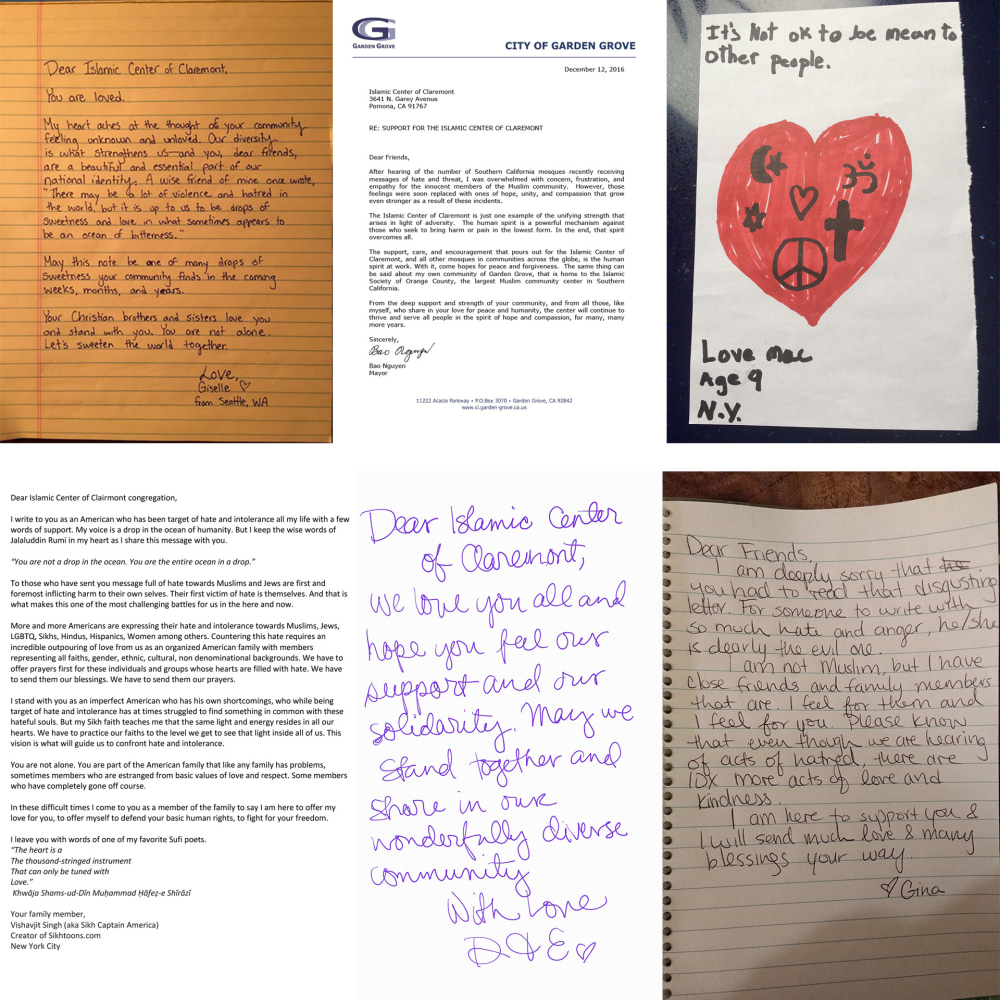 Dear Islamic Center of Claremont,
You are loved.
My heart aches at the thought of your community
feeling unknown and unloved. Our diversity
is what strengthens us—and you, dear friends,
are a beautiful and essential part of our
national identity. A wise friend of mine once wrote,
"There may be a lot of violence and hatred in
the world, but it is up to us to be drops of
sweetness and love in what sometimes appears to
be an ocean of bitterness."
May this note be one of many drops of
sweetness your community finds in the coming
weeks, months, and years.
Your Christian brothers and sisters love you
and stand with you. You are not alone.
Let's sweeten the world together.
Love,
Giselle ♡
from Seattle, WA
GARDEN GROVE
CITY OF GARDEN GROVE
December 12, 2016
Islamic Center of Claremont
3641 N. Garey Avenue
Pomona, CA 91767
RE: SUPPORT FOR THE ISLAMIC CENTER OF CLAREMONT
Dear Friends,
After hearing of the number of Southern California mosques recently receiving
messages of hate and threat, I was overwhelmed with concern, frustration, and
empathy for the innocent members of the Muslim community. However, those
feelings were soon replaced with ones of hope, unity, and compassion that grow
even stronger as a result of these incidents.
The Islamic Center of Claremont is just one example of the unifying strength that
arises in light of adversity. The human spirit is a powerful mechanism against
those who seek to bring harm or pain in the lowest form. In the end, that spirit
overcomes all.
The support, care, and encouragement that pours out for the Islamic Center of
Claremont, and all other mosques in communities across the globe, is the human
spirit at work. With it, come hopes for peace and forgiveness. The same thing can
be said about my own community of Garden Grove, that is home to the Islamic
Society of Orange County, the largest Muslim community center in Southern
California.
From the deep support and strength of your community, and from all those, like
myself, who share in your love for peace and humanity, the center will continue to
thrive and serve all people in the spirit of hope and compassion, for many, many
more years.
Sincerely,
Bao Nguyen
Bao Nguyen
Mayor
11222 Acacia Parkway • P.O.Box 3070 • Garden Grove, CA 92842
www.ci.garden-grove.ca.us
It's Not ok to be mean to
other people.
ॐ
Love Mac
Age 9
N.Y.
Dear Islamic Center of Clairmont congregation,
I write to you as an American who has been target of hate and intolerance all my life with a few
words of support. My voice is a drop in the ocean of humanity. But I keep the wise words of
Jalaluddin Rumi in my heart as I share this message with you.
"You are not a drop in the ocean. You are the entire ocean in a drop."
To those who have sent you message full of hate towards Muslims and Jews are first and
foremost inflicting harm to their own selves. Their first victim of hate is themselves. And that is
what makes this one of the most challenging battles for us in the here and now.
More and more Americans are expressing their hate and intolerance towards Muslims, Jews,
LGBTQ, Sikhs, Hindus, Hispanics, Women among others. Countering this hate requires an
incredible outpouring of love from us as an organized American family with members
representing all faiths, gender, ethnic, cultural, non denominational backgrounds. We have to
offer prayers first for these individuals and groups whose hearts are filled with hate. We have
to send them our blessings. We have to send them our prayers.
I stand with you as an imperfect American who has his own shortcomings, who while being
target of hate and intolerance has at times struggled to find something in common with these
hateful souls. But my Sikh faith teaches me that the same light and energy resides in all our
hearts. We have to practice our faiths to the level we get to see that light inside all of us. This
vision is what will guide us to confront hate and intolerance.
You are not alone. You are part of the American family that like any family has problems,
sometimes members who are estranged from basic values of love and respect. Some members
who have completely gone off course.
In these difficult times I come to you as a member of the family to say I am here to offer my
love for you, to offer myself to defend your basic human rights, to fight for your freedom.
I leave you with words of one of my favorite Sufi poets.
"The heart is a
The thousand-stringed instrument
That can only be tuned with
Love."
Khwāja Shams-ud-Dīn Muḥammad Ḥāfeẓ-e Shīrāzī
Your family member,
Vishavjit Singh (aka Sikh Captain America)
Creator of Sikhtoons.com
New York City
Dear Islamic Center
of Claremont,
we love you all and
hope you feel our
support and our
solidarity. May we
stand together and
share in our
wonderfully diverse
community
With Love
D & E ♡
Dear Friends,
I am deeply sorry that
you had to read that disgusting
letter. For someone to write with
so much hate and anger, he/she
is clearly the evil one.
I am not Muslim, but I have
close friends and family members
that are. I feel for them and
I feel for you. Please know
that even though we are hearing
of acts of hatred, there are
10x more acts of love and
kindness.
I am here to support you &
I will send much love & many
blessings your way.
♡ Gina